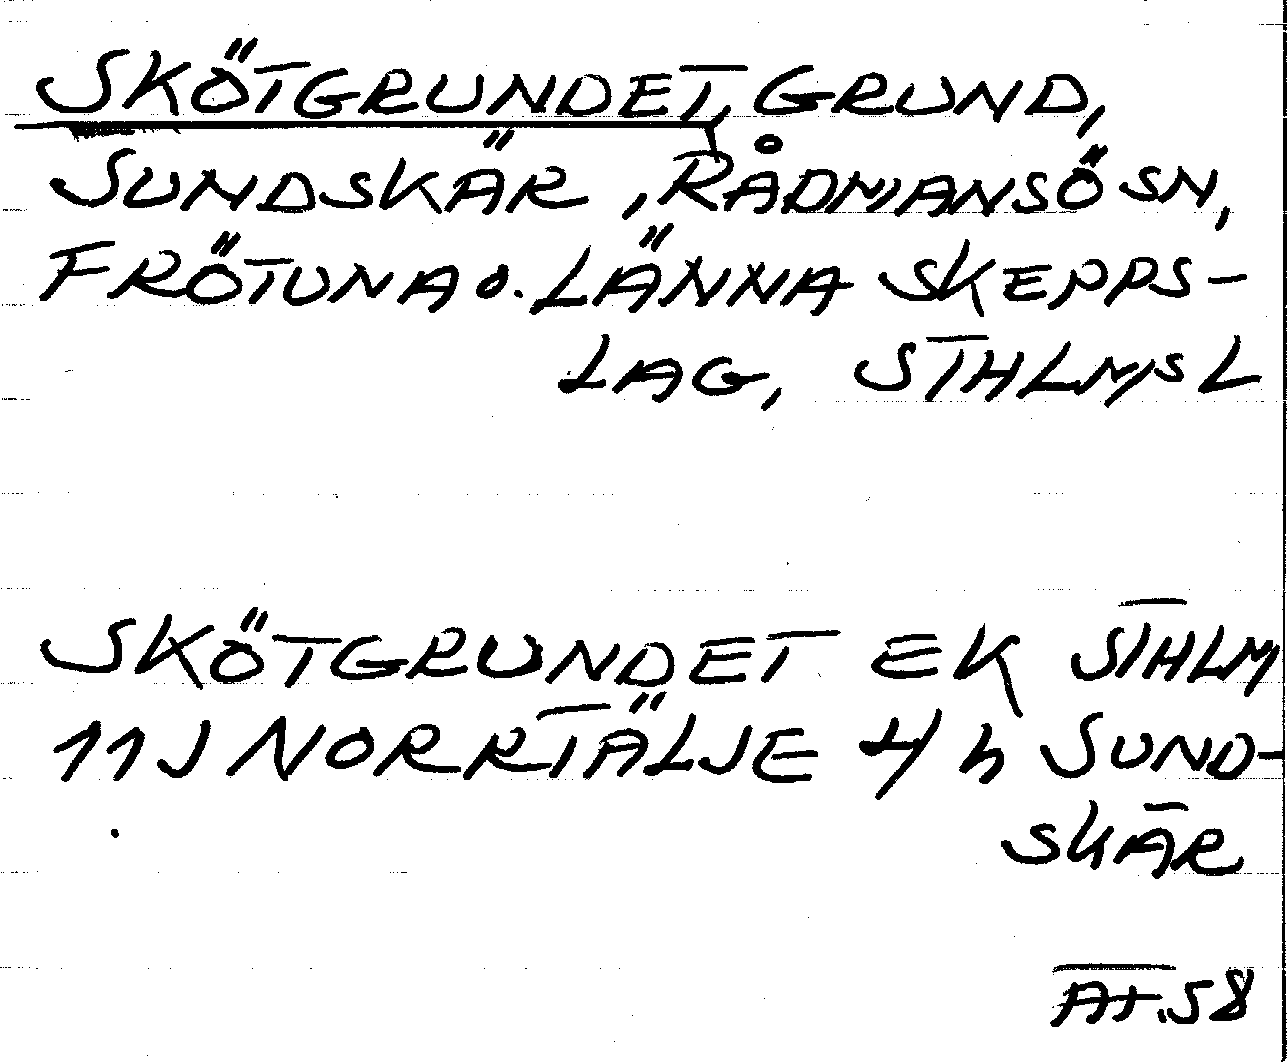 SKÖTGRUNDET, GRUND,
SUNDSKÄR, RÅDMANSÖ SN,
FRÖTUNA o. LÄNNA SKEPPS-
LAG, STHLMS L
SKÖTGRUNDET EK STHLM
11J NORRTÄLJE 4 h SUND-
SKÄR